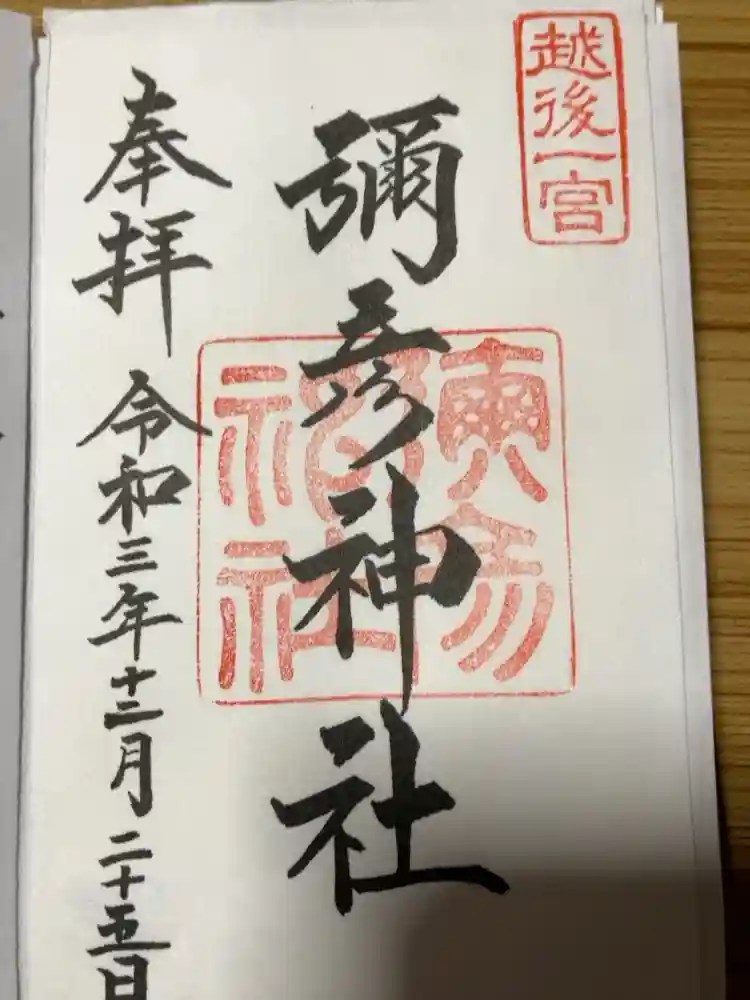 越後一宮
彌彦神社
奉拝 令和三年十二月二十五日